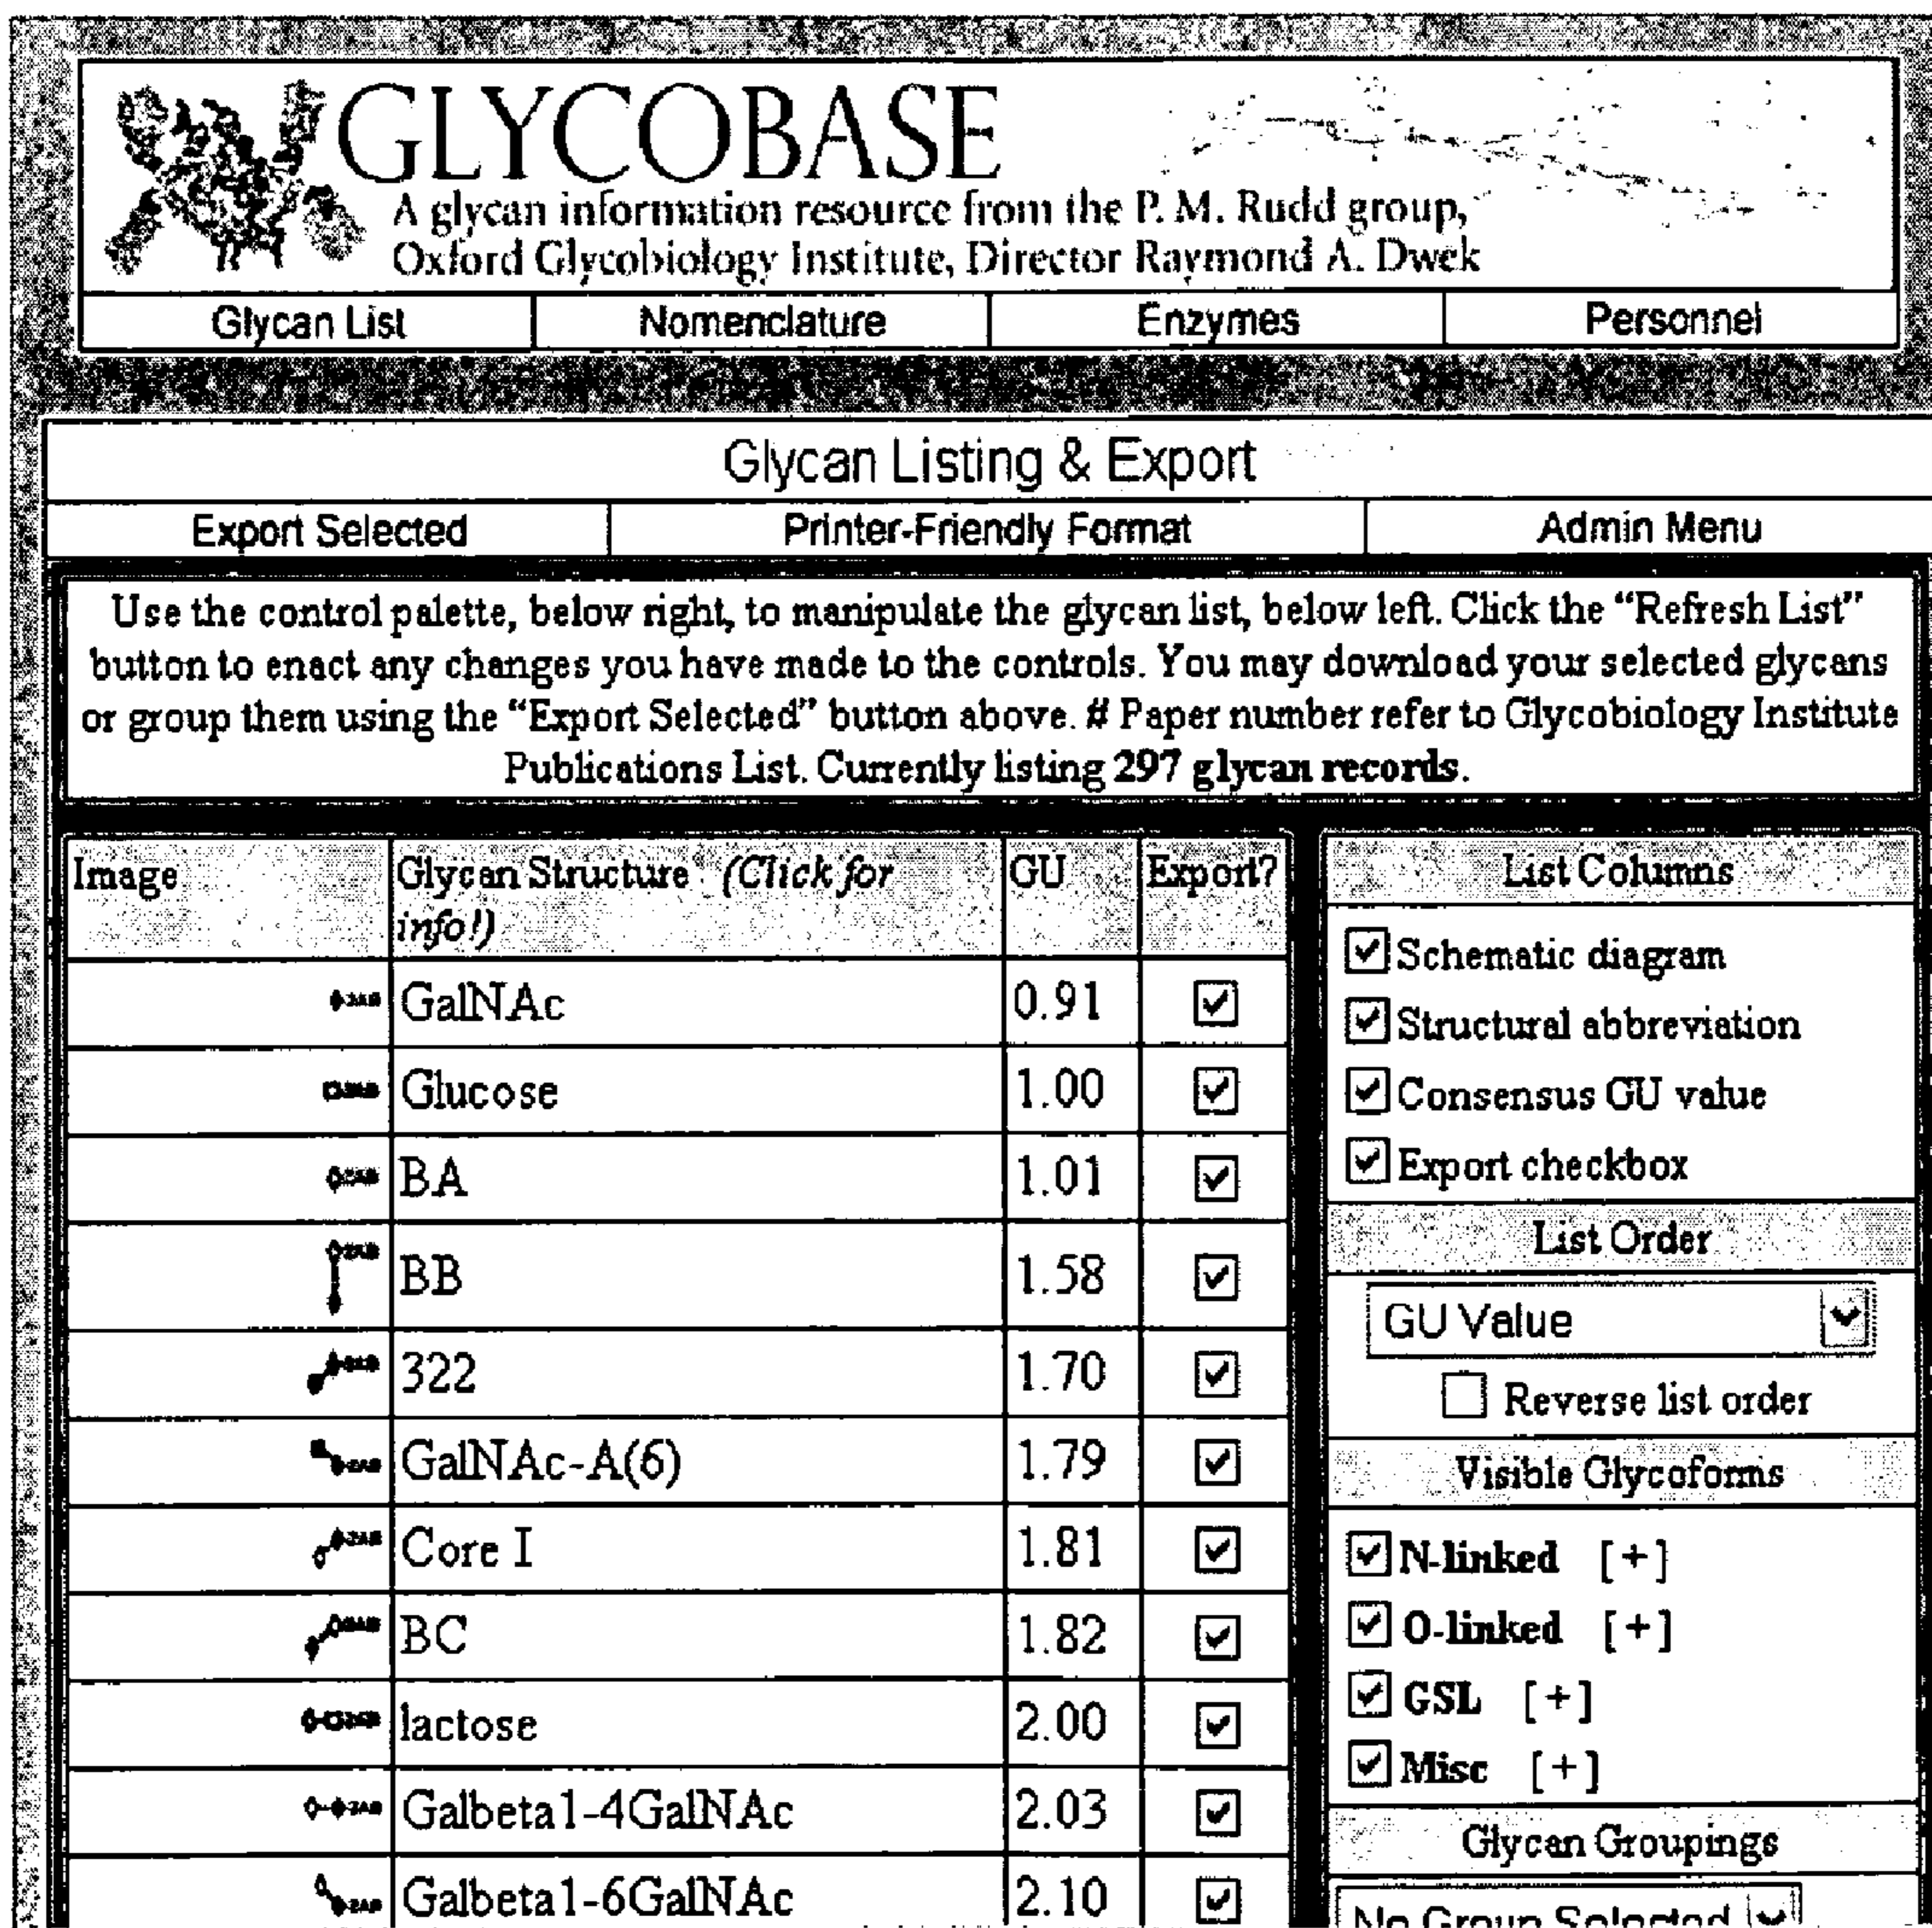 GLYCOBASE
A glycan information resource from the P. M. Rudd group,
Oxford Glycobiology Institute, Director Raymond A. Dwek
Glycan List Nomenclature Enzymes Personnel
Glycan Listing & Export
Export Selected Printer-Friendly Format Admin Menu
Use the control palette, below right, to manipulate the glycan list, below left. Click the “Refresh List”
button to enact any changes you have made to the controls. You may download your selected glycans
or group them using the “Export Selected” button above. # Paper number refer to Glycobiology Institute
Publications List. Currently listing 297 glycan records.
Image Glycan Structure (Click for GU Export?
info!)
GalNAc 0.91
Glucose 1.00
BA 1.01
BB 1.58
322 1.70
GalNAc-A(6) 1.79
Core I 1.81
BC 1.82
lactose 2.00
Galbeta1-4GalNAc 2.03
Galbeta1-6GalNAc 2.10
List Columns
Schematic diagram
Structural abbreviation
Consensus GU value
Export checkbox
List Order
GU Value
Reverse list order
Visible Glycoforms
N-linked [+]
O-linked [+]
GSL [+]
Misc [+]
Glycan Groupings
No Group Selected